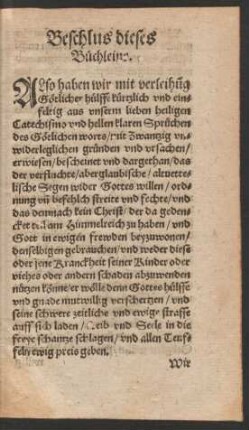 Beschlus dieses
Büchleins.
Also haben wir mit verleihũg
Götlicher hülffe kürtzlich vnd ein-
feltig aus vnserm lieben heiligen
Catechismo vnd hellen klaren Sprüchen
des Götlichen worts / mit Zwantzig vn-
widerleglichen gründen vnd vrsachen /
erwiesen / bescheinet vnd dargethan / das
der verfluchte / aberglaubische / altuette-
lische Segen wider Gottes willen / ord-
nung vñ befehlch streite vnd fechte / vnd
das demnach kein Christ / der da geden-
cket Himmelreich zu haben / vnd
Gott in ewigen frewden beyzuwonen /
denselbigen gebrauchen / vnd weder diese
oder jene Kranckheit seiner Kinder oder
viehes oder andern schaden abzuwenden
nützen könne / er wölle denn Gottes hülffe
vnd gnade mutwillig verschertzen / vnd
seine schwere zeitliche vnd ewige straffe
auff sich laden / Leib vnd Seele in die
schantze schlagen / vnd allen Teuf-
feln ewig preis geben.
Wir